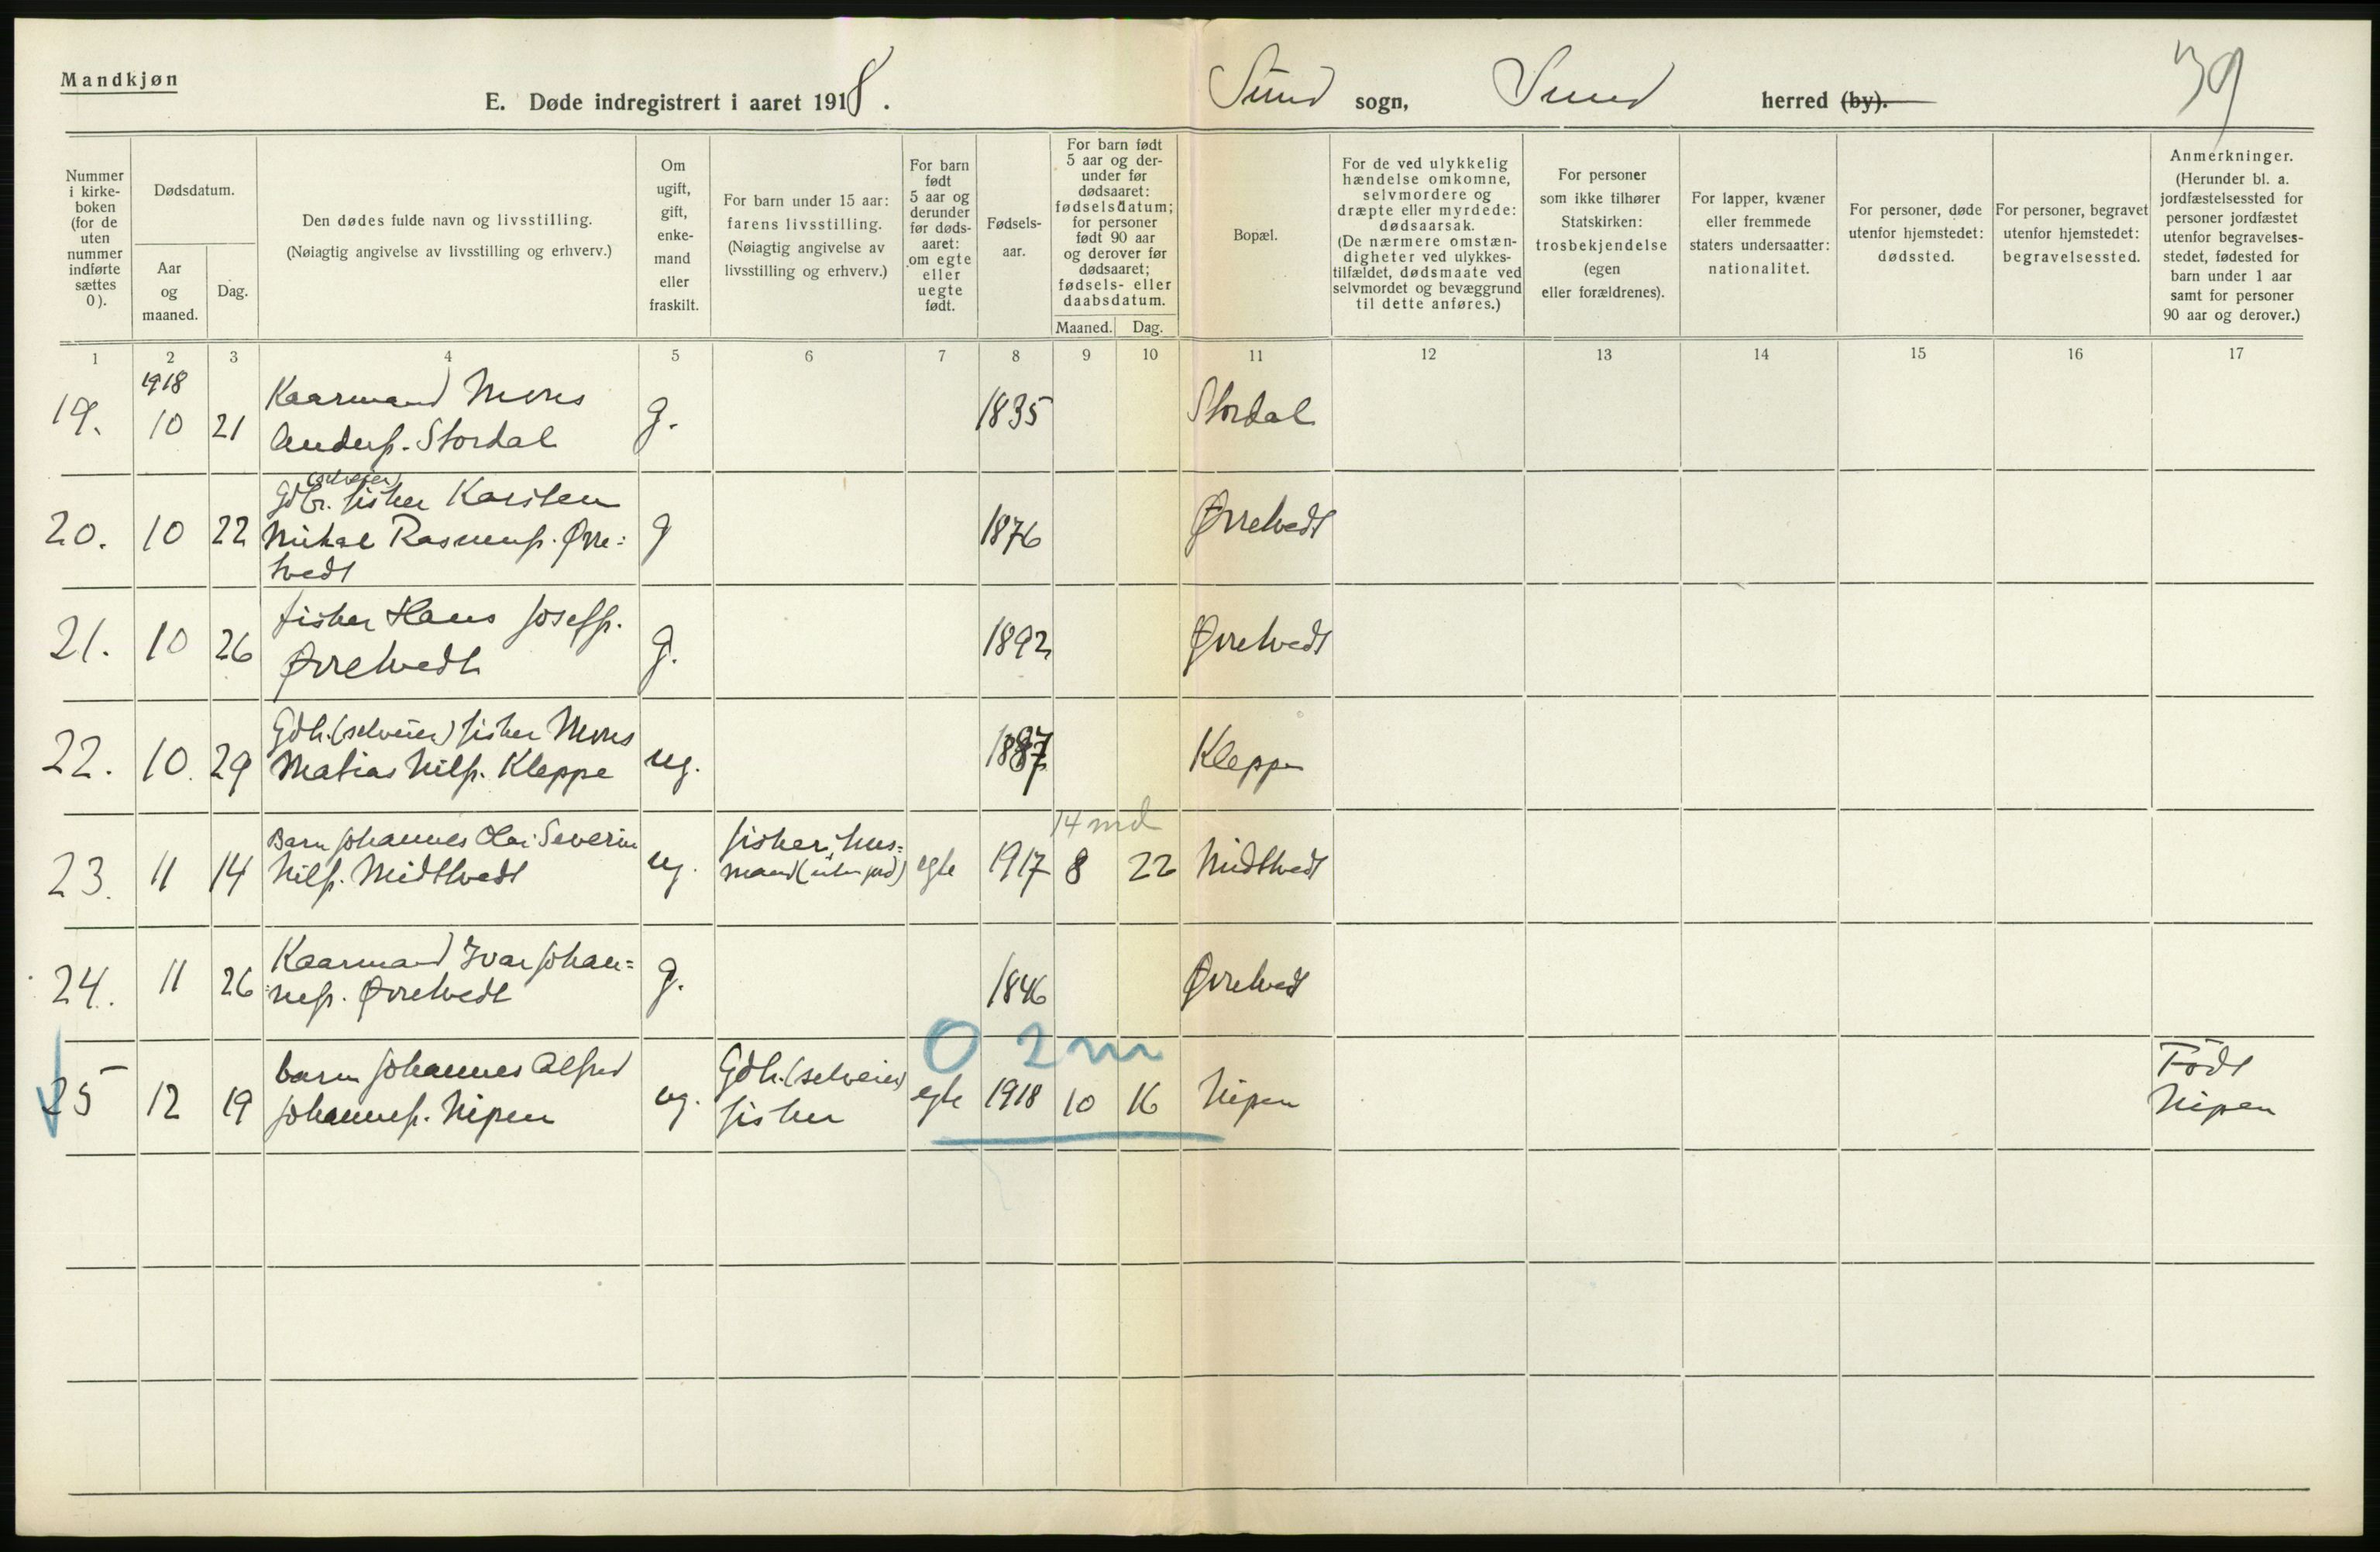 Mandkjøn
E. Døde indregistrert i aaret 1918.
Sund sogn, Sund herred (by).
39
Nummer i kirkeboken (for de uten nummer indførte sættes 0).
Dødsdatum.
Aar og maaned.
Dag.
Den dødes fulde navn og livsstilling.
(Nøiagtig angivelse av livsstilling og erhverv.)
Om ugift, gift, enkemand eller fraskilt.
For barn under 15 aar: farens livsstilling.
(Nøiagtig angivelse av livsstilling og erhverv.)
For barn født 5 aar og derunder før dødsaaret: om egte eller uegte født.
Fødselsaar.
For barn født 5 aar og derunder før dødsaaret: fødselsdatum; for personer født 90 aar og derover før dødsaaret; fødsels- eller daabsdatum.
Maaned. Dag.
Bopæl.
For de ved ulykkelig hændelse omkomne, selvmordere og dræpte eller myrdede: dødsaarsak.
(De nærmere omstændigheter ved ulykkestilfældet, dødsmaate ved selvmordet og bevæggrund til dette anføres.)
For personer som ikke tilhører Statskirken: trosbekjendelse (egen eller forældrenes).
For lapper, kvæner eller fremmede staters undersaatter: nationalitet.
For personer, døde utenfor hjemstedet: dødssted.
For personer, begravet utenfor hjemstedet: begravelsessted.
Anmerkninger.
(Herunder bl. a. jordfæstelsessted for personer jordfæstet utenfor begravelsesstedet, fødested for barn under 1 aar samt for personer 90 aar og derover.)
1 2 3 4 5 6 7 8 9 10 11 12 13 14 15 16 17
1918
19. 10 21 Kaarmand Mons g. 1835 Stordal
Anders. Stordal
(selveier)
20. 10 22 Gdbr. fisker Karsten g 1876 Ørretvedt
Mikal Rasmuss. Ørre=
tvedt
21. 10 26 fisker Hans Josefs. g. 1892 Ørretvedt
Ørretvedt
22. 10. 29 Gdb. (selveier) fisker Mons ug. 1887 Kleppe
Matias Nilss. Kleppe
14 md
23. 11 14 Barn Johannes Olai Severin ug. fisker, hus= egte 1917 8 22 Midttvedt
Nilss. Midttvedt mand (uten jord)
24. 11 26 Kaarmand Ivar Johan= g. 1846 Ørretvedt
=ness. Ørretvedt
0 2 m
25 12 19 barn Johannes Alfred ug. Gdb. (selveier) egte 1918 10 16 Nipen Født
Johanness. Nipen fisker Nipen